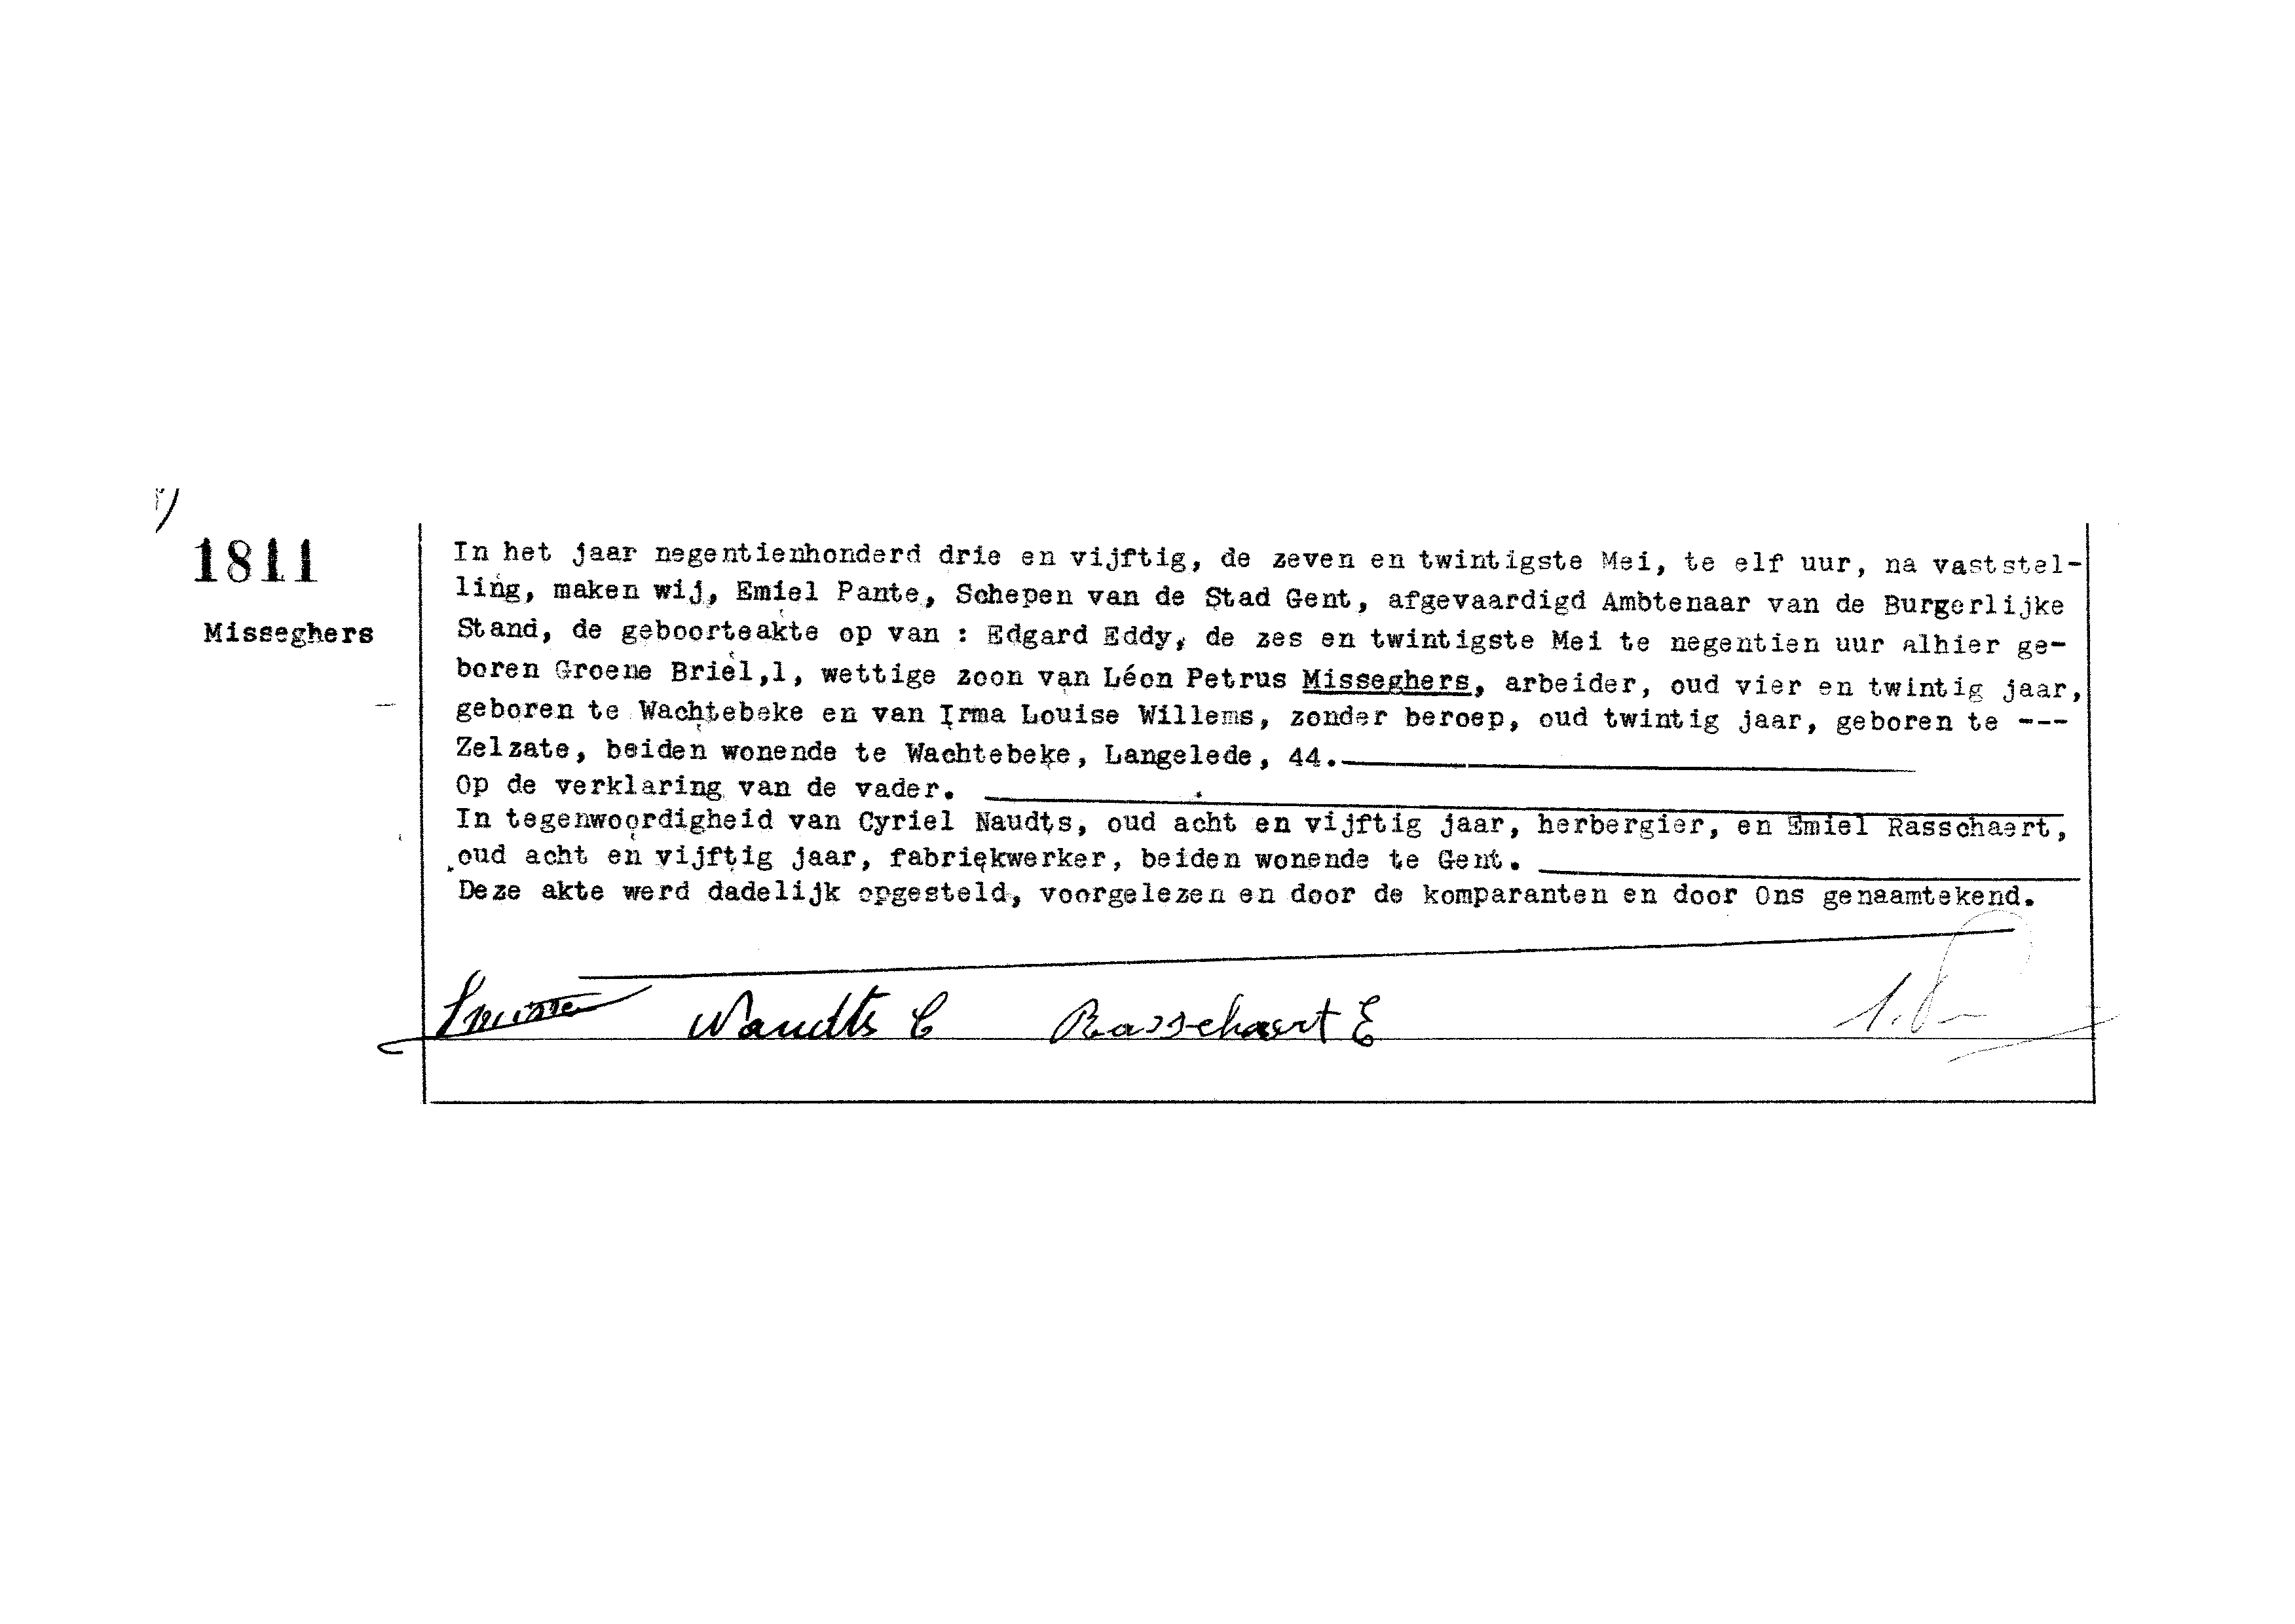 1811
Misseghers
In het jaar negentienhonderd drie en vijftig, de zeven en twintigste Mei, te elf uur, na vaststel-
ling, maken wij, Emiel Pante, Schepen van de Stad Gent, afgevaardigd Ambtenaar van de Burgerlijke
Stand, de geboorteakte op van : Edgard Eddy, de zes en twintigste Mei te negentien uur alhier ge-
boren Groene Briel,1, wettige zoon van Léon Petrus Misseghers, arbeider, oud vier en twintig jaar,
geboren te Wachtebeke en van Irma Louise Willems, zonder beroep, oud twintig jaar, geboren te ---
Zelzate, beiden wonende te Wachtebeke, Langelede, 44.
Op de verklaring van de vader.
In tegenwoordigheid van Cyriel Naudts, oud acht en vijftig jaar, herbergier, en Emiel Rasschaert,
oud acht en vijftig jaar, fabriekwerker, beiden wonende te Gent.
Deze akte werd dadelijk opgesteld, voorgelezen en door de komparanten en door Ons genaamtekend.
Naudts C Rasschaert E